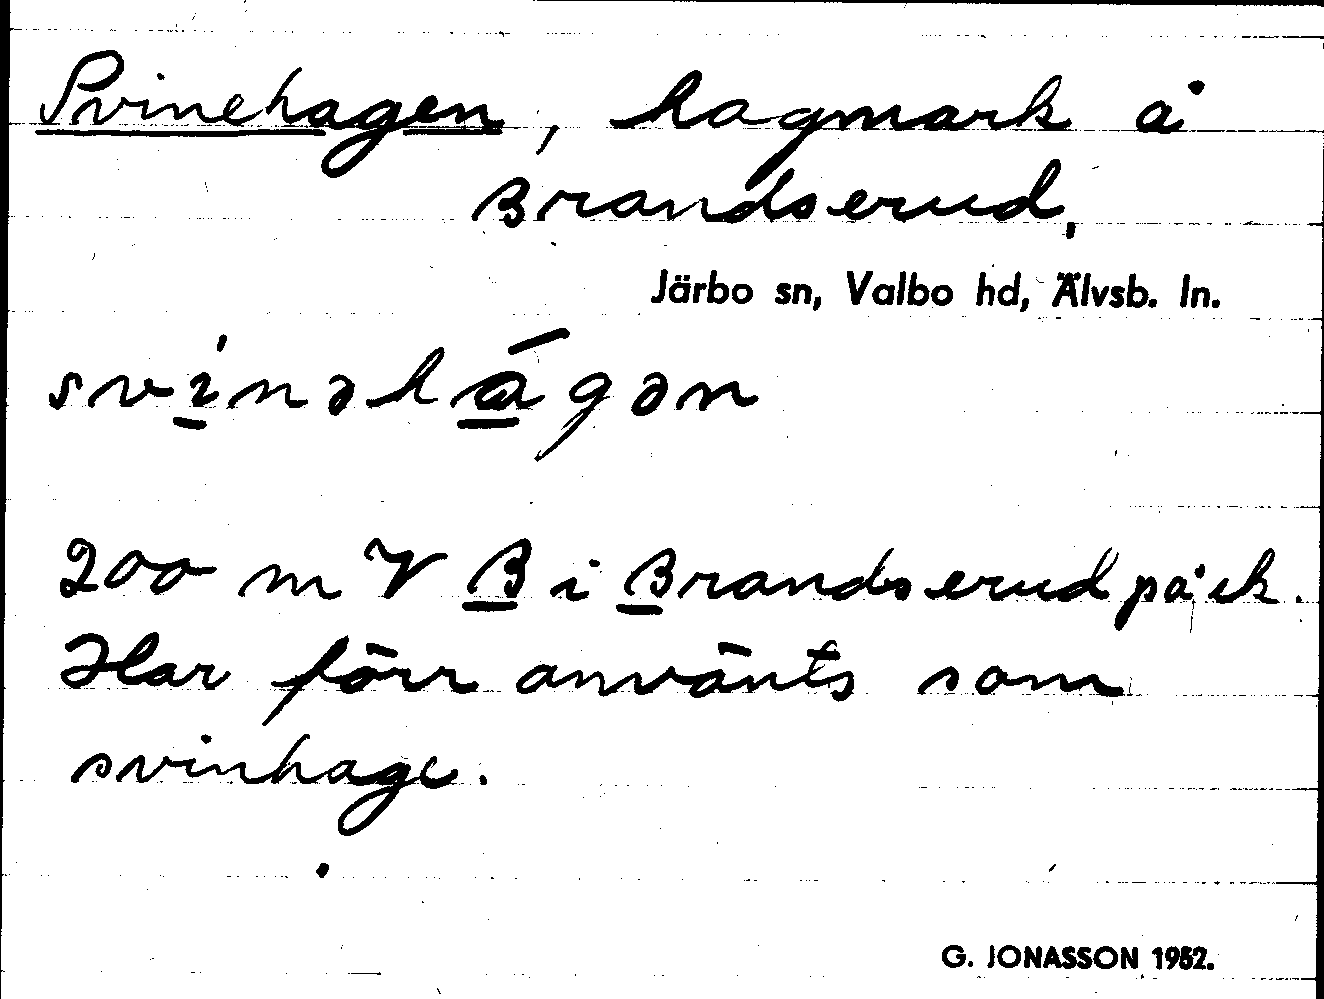 Svinehagen, hagmark å
Brandserud,
Järbo sn, Valbo hd, Älvsb. ln.
sví̲nəhǻ̲gən
200 m V B i Brandserud på ek.
Har förr använts som
svinhage.
G. JONASSON 1952.